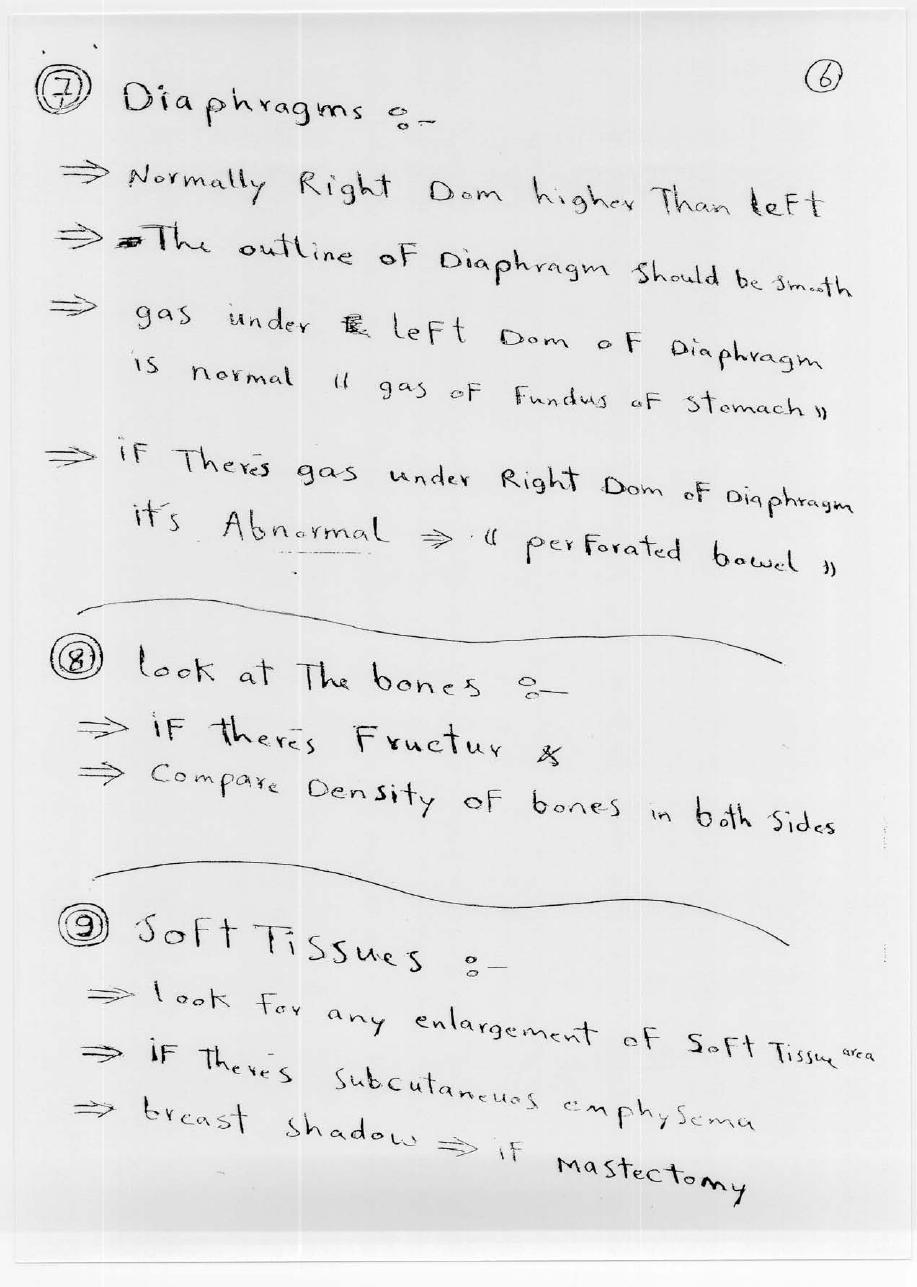 6
7 Diaphragms :-
⇒ Normally Right Dom higher Than left
⇒ The outline of Diaphragm should be smooth
⇒ gas under left Dom of Diaphragm
is normal (( gas of Fundus of stomach ))
⇒ if There's gas under Right Dom of Diaphragm
it's Abnormal ⇒ (( perforated bowel ))
8 look at The bones :-
⇒ if there's Fructur &
⇒ Compare Density of bones in both sides
9 Soft Tissues :-
⇒ look for any enlargement of Soft Tissue area
⇒ if There's subcutaneuos emphysema
⇒ breast shadow ⇒ if mastectomy